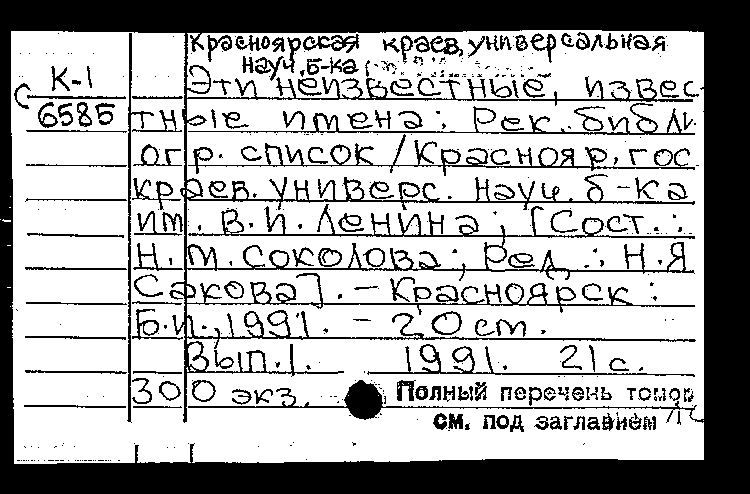 Красноярская краев. универсальная
науч. б-ка
К-1
Эти неизвестные, извес-
6585
тные имена: Рек. библи
огр. список / Краснояр. гос
краев. универс. науч. б-ка
им. В.И. Ленина; [Сост.:
Н.М. Соколова; Ред.: Н.Я
Сакова]. - Красноярск:
Б.и., 1991. - 20 см.
Вып.1. 1991. 21 с.
300 экз.
Полный перечень томов
см. под заглавием